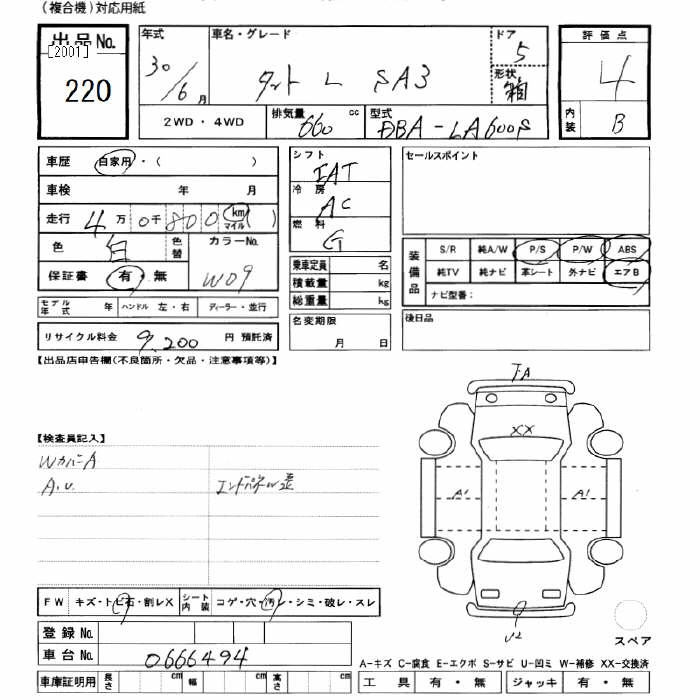 (複合機)対応用紙
出品No.
[2001]
220
年式
30/6月
車名・グレード
タント L SA3
ドア
5
形状
箱
評価点
4
内装
B
2WD・4WD
排気量
660 cc
型式
DBA-LA600S
車歴 自家用・( )
車検 年 月
走行 4万0千800 km マイル ( )
色 白 色替
カラーNo.
W09
保証書 有・無
モデル年式 年 ハンドル 左・右 ディーラー・並行
リサイクル料金 9,200 円 預託済
シフト
IAT
冷房
AC
燃料
G
乗車定員 名
積載量 kg
総重量 kg
名変期限
月 日
セールスポイント
装備品
S/R 純A/W P/S P/W ABS
純TV 純ナビ 革シート 外ナビ エアB
ナビ型番:
後日品
【出品店申告欄(不良箇所・欠品・注意事項等)】
【検査員記入】
WカバーA
A.U.
エンドパネルW歪
FA
XX
A1
A1
U2
スペア
FW キズ・トビ石・割レX
シート内装 コゲ・穴・汚レ・シミ・破レ・スレ
登録No.
車台No. 0666494
車庫証明用 長さ cm 幅 cm 高さ cm
A-キズ C-腐食 E-エクボ S-サビ U-凹ミ W-補修 XX-交換済
工具 有・無 ジャッキ 有・無